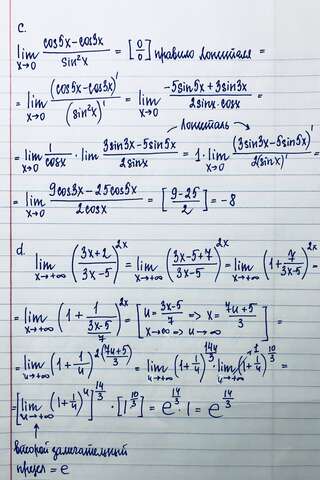 c.
lim x→0 (cos5x-cos3x)/(sin²x) = [0/0] правило Лопиталя =
= lim x→0 (cos5x-cos3x)'/(sin²x)' = lim x→0 (-5sin5x+3sin3x)/(2sinx·cosx) =
Лопиталь
= lim x→0 1/cosx · lim x→0 (3sin3x-5sin5x)/(2sinx) = 1·lim x→0 (3sin3x-5sin5x)'/(2(sinx)') =
= lim x→0 (9cos3x-25cos5x)/(2cosx) = [(9-25)/2] = -8
d. lim x→+∞ ((3x+2)/(3x-5))^2x = lim x→+∞ ((3x-5+7)/(3x-5))^2x = lim x→+∞ (1+7/(3x-5))^2x =
= lim x→+∞ (1+1/((3x-5)/7))^2x = [u=(3x-5)/7 => x=(7u+5)/3 x→∞ => u→∞] =
= lim u→+∞ (1+1/u)^(2(7u+5)/3) = lim u→+∞ (1+1/u)^(14u/3) · lim u→+∞ (1+1/u)^(10/3) =
= [lim u→+∞ (1+1/u)^u]^(14/3) · [1^(10/3)] = e^(14/3) · 1 = e^(14/3)
второй замечательный
предел = e